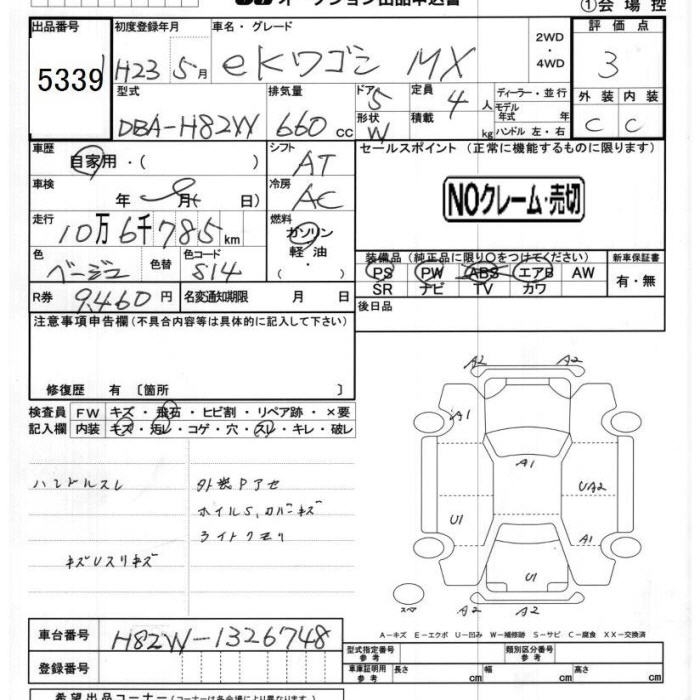 オークション出品申込書
①会 場 控
出品番号
5339
初度登録年月
H23 5月
車名・グレード
eKワゴン MX
2WD
・
4WD
評 価 点
3
型式
DBA-H82W
排気量
660 cc
ドア
5
形状
W
定員
4 人
積載
kg
ディーラー・並行
モデル
年式 年
ハンドル 左・右
外 装 内 装
C C
車歴
自家用・( )
シフト
AT
車検
年 月( 日)
冷房
AC
走行
10万6千785km
燃料
ガソリン
軽 油
色
ベージュ
色替
色コード
S14
R券
9,460円
名変通知期限 月 日
セールスポイント (正常に機能するものに限ります)
NOクレーム・売切
装備品 (純正品に限り〇をつけてください)
新車保証書
PS PW ABS エアB AW
SR ナビ TV カワ
有・無
後日品
注意事項申告欄(不具合内容等は具体的に記入して下さい)
修復歴 有 〔箇所 〕
検査員 FW キズ・飛石・ヒビ割・リペア跡・×要
記入欄 内装 キズ・汚レ・コゲ・穴・スレ・キレ・破レ
ハンドルスレ
外装Pアセ
ホイルS,カバーキズ
ライトクモリ
キズUスリキズ
A2 A2
A1
A1
UA2
U1
A1
U1
A2 A2
スペア
A-キズ E-エクボ U-凹み W-補修跡 S-サビ C-腐食 XX-交換済
車台番号
H82W-1326748
登録番号
型式指定番号
参 考
類別区分番号
参 考
車庫証明用
参 考
長さ cm 幅 cm 高さ cm
希望出品コーナー(コーナーは各会場により異なります)